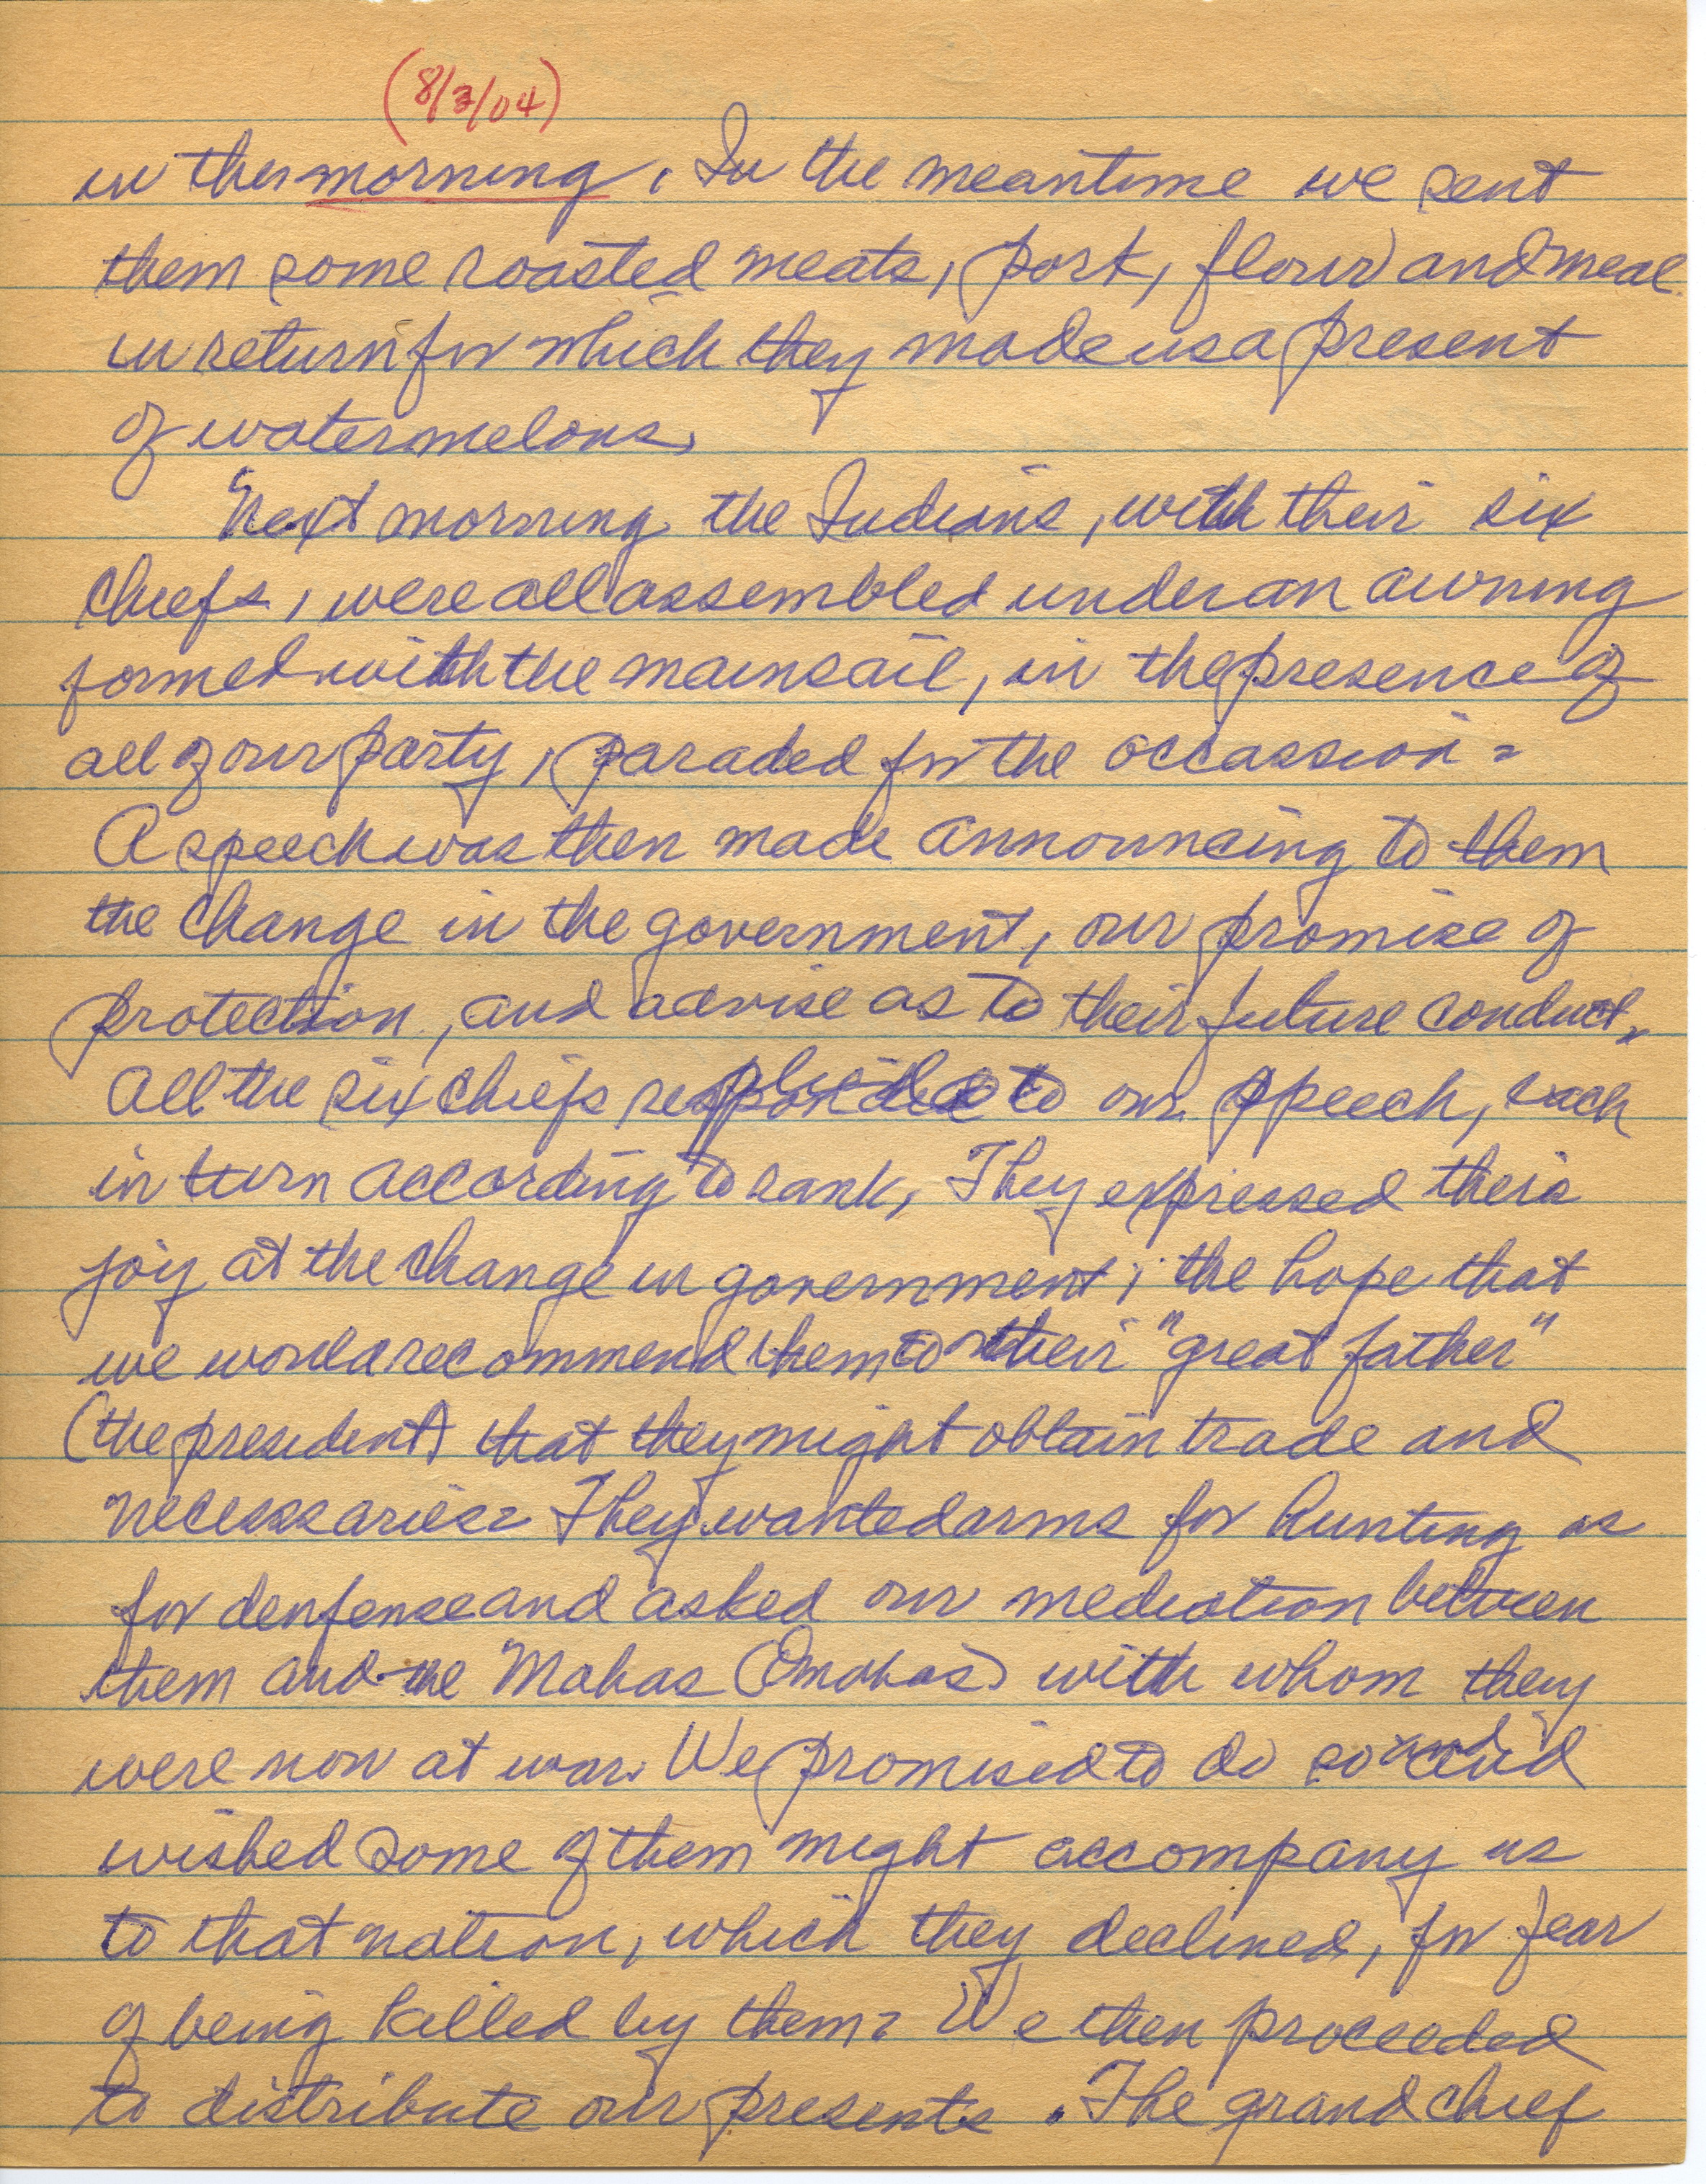 (8/3/04)
in the morning. In the meantime we sent
them some roasted meats, pork, flour and meal
in return for which they made us a present
of watermelons.
Next morning the Indians, with their six
chiefs, were all assembled under an awning
formed with the mainsail, in the presence of
all of our party, paraded for the occassion.
A speech was then made announcing to them
the change in the government, our promise of
protection, and advise as to their future conduct.
All the six chiefs replied to our speech, each
in turn according to rank. They expressed their
joy at the change in government; the hope that
we would recommend them to their "great father"
(the president) that they might obtain trade and
necessaries. They wanted arms for hunting as
for denfense and asked our mediation between
them and the Mahas (Omahas) with whom they
were now at war. We promised to do so and
wished some of them might accompany us
to that nation, which they declined, for fear
of being killed by them. We then proceeded
to distribute our presents. The grand chief